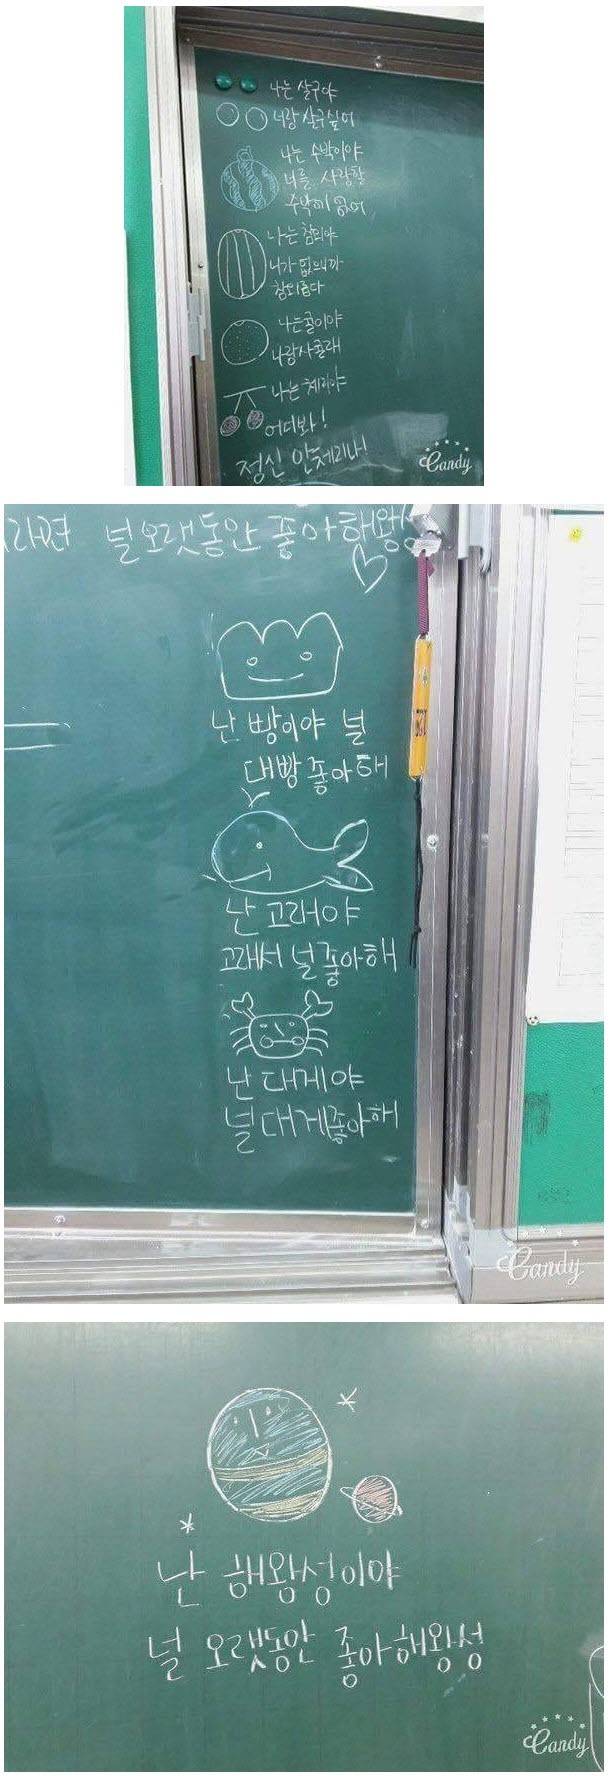 나는 살구야
너랑 살구싶어
나는 수박이야
너를 사랑할
수박에 없어
나는 참외야
니가 없으니까
참외롭다
나는귤이야
나랑사귤래
나는 체리야
어디봐!
정신 안체리나!
Candy
널 오랫동안 좋아해왕성
난 빵이야 널
대빵 좋아해
난 고래야
고래서 널좋아해
난 대게야
널대게좋아해
Candy
난 해왕성이야
널 오랫동안 좋아해왕성
Candy